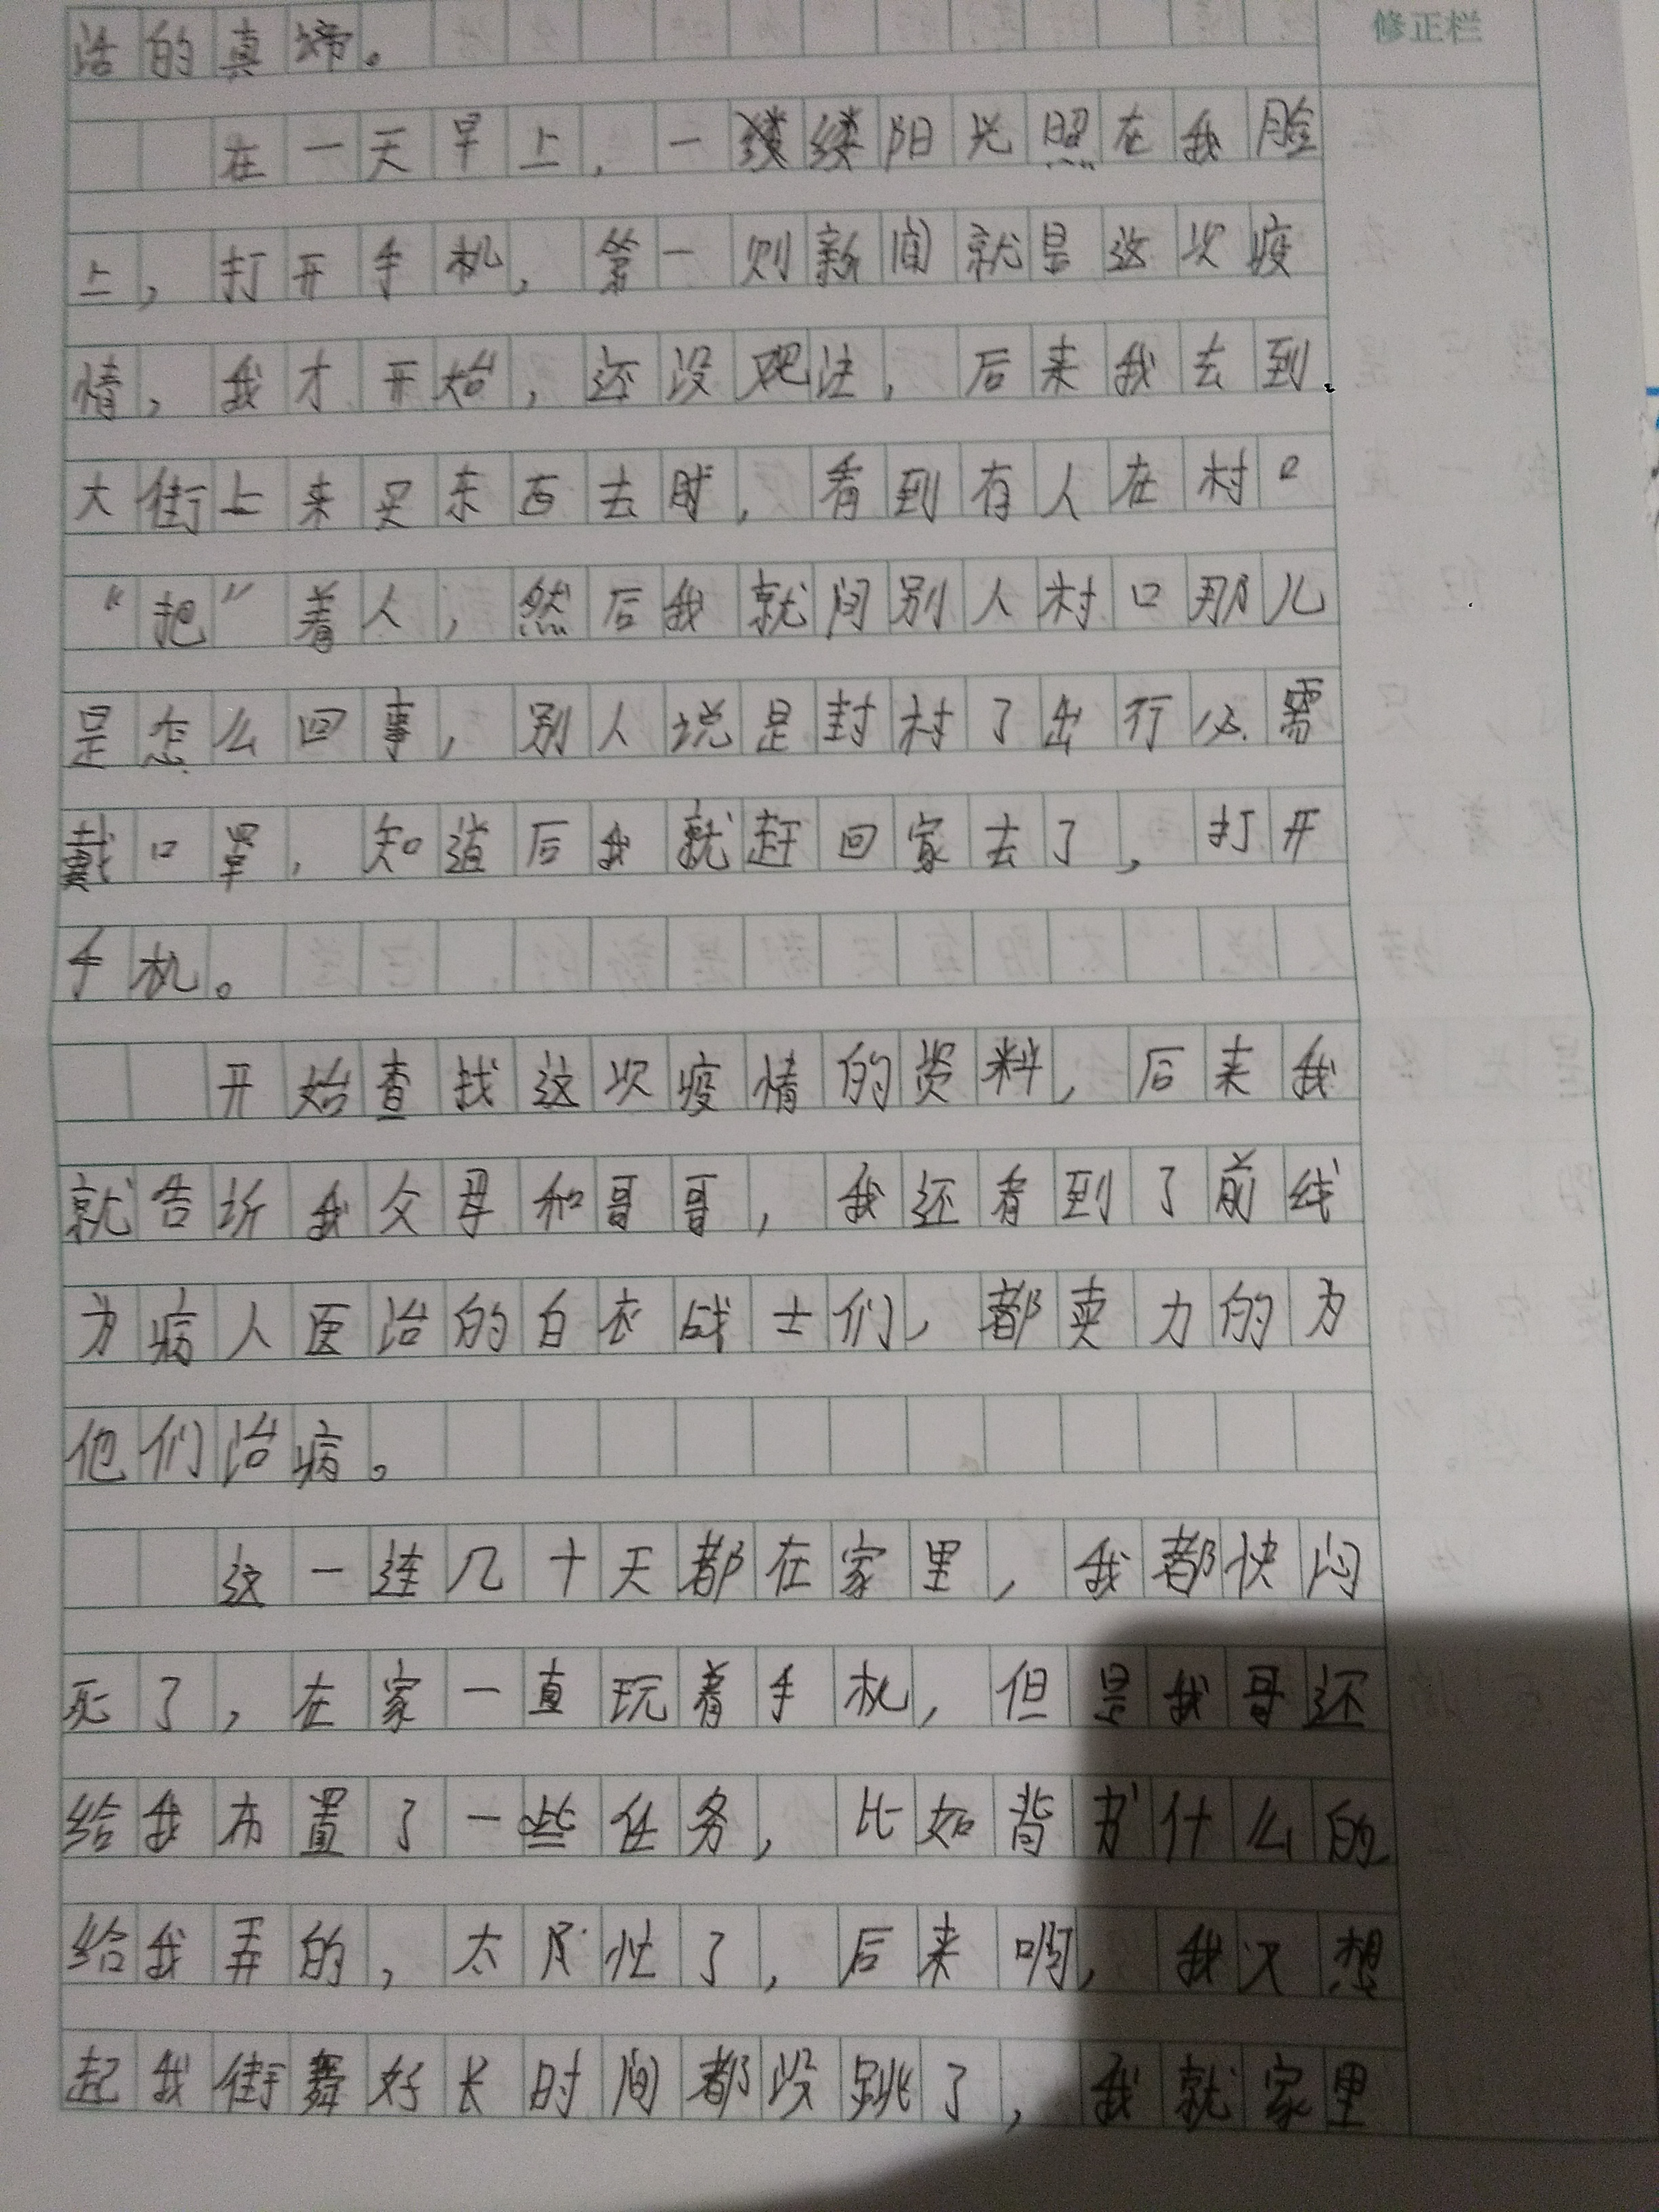 活的真谛。
修正栏
在一天早上，一缕缕阳光照在我脸
上，打开手机，第一则新闻就是这次疫
情，我才开始，还没关注，后来我去到
大街上来买东西去时，看到有人在村口
“把”着人，然后我就问别人村口那儿
是怎么回事，别人说是封村了出行必需
戴口罩，知道后我就赶回家去了，打开
手机。
开始查找这次疫情的资料，后来我
就告诉我父母和哥哥，我还看到了前线
为病人医治的白衣战士们，都卖力的为
他们治病。
这一连几十天都在家里，我都快闷
死了，在家一直玩着手机，但是我哥还
给我布置了一些任务，比如背书什么的
给我弄的，太忙了，后来啊，我又想
起我街舞好长时间都没跳了，我就家里